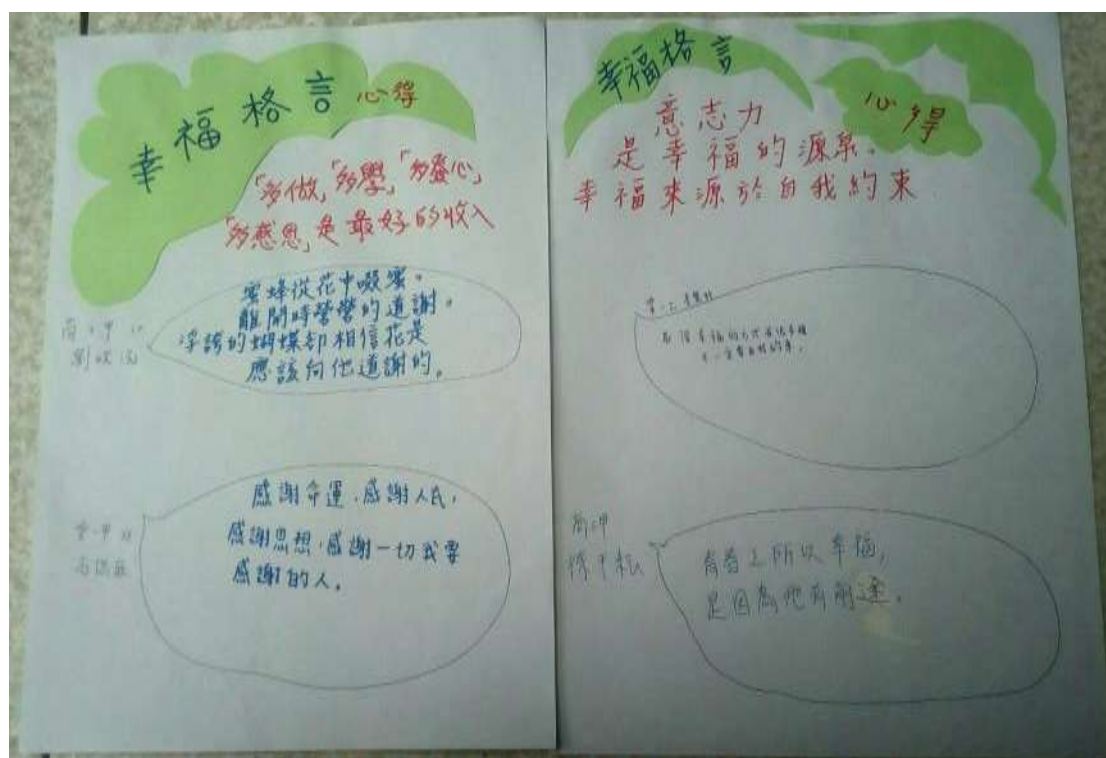 幸福格言 心得
「多做」「多學」「多發心」
「多感恩」是最好的收入
蜜蜂從花中啜蜜。
離開時營營的道謝。
浮誇的蝴蝶卻相信花是
應該向他道謝的。
感謝命運,感謝人民,
感謝思想,感謝一切我要
感謝的人。
幸福格言
心得
意志力
是幸福的源泉,
幸福來源於自我約束
青春之所以幸福,
是因為他有前途。